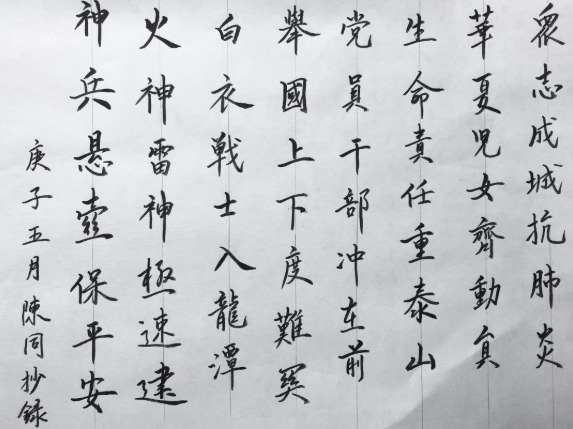 眾志成城抗肺炎
華夏児女齊動員
生命責任重泰山
党員干部冲在前
舉國上下度難関
白衣戦士入龍潭
火神雷神極速建
神兵悬壺保平安
庚子五月陳同抄録